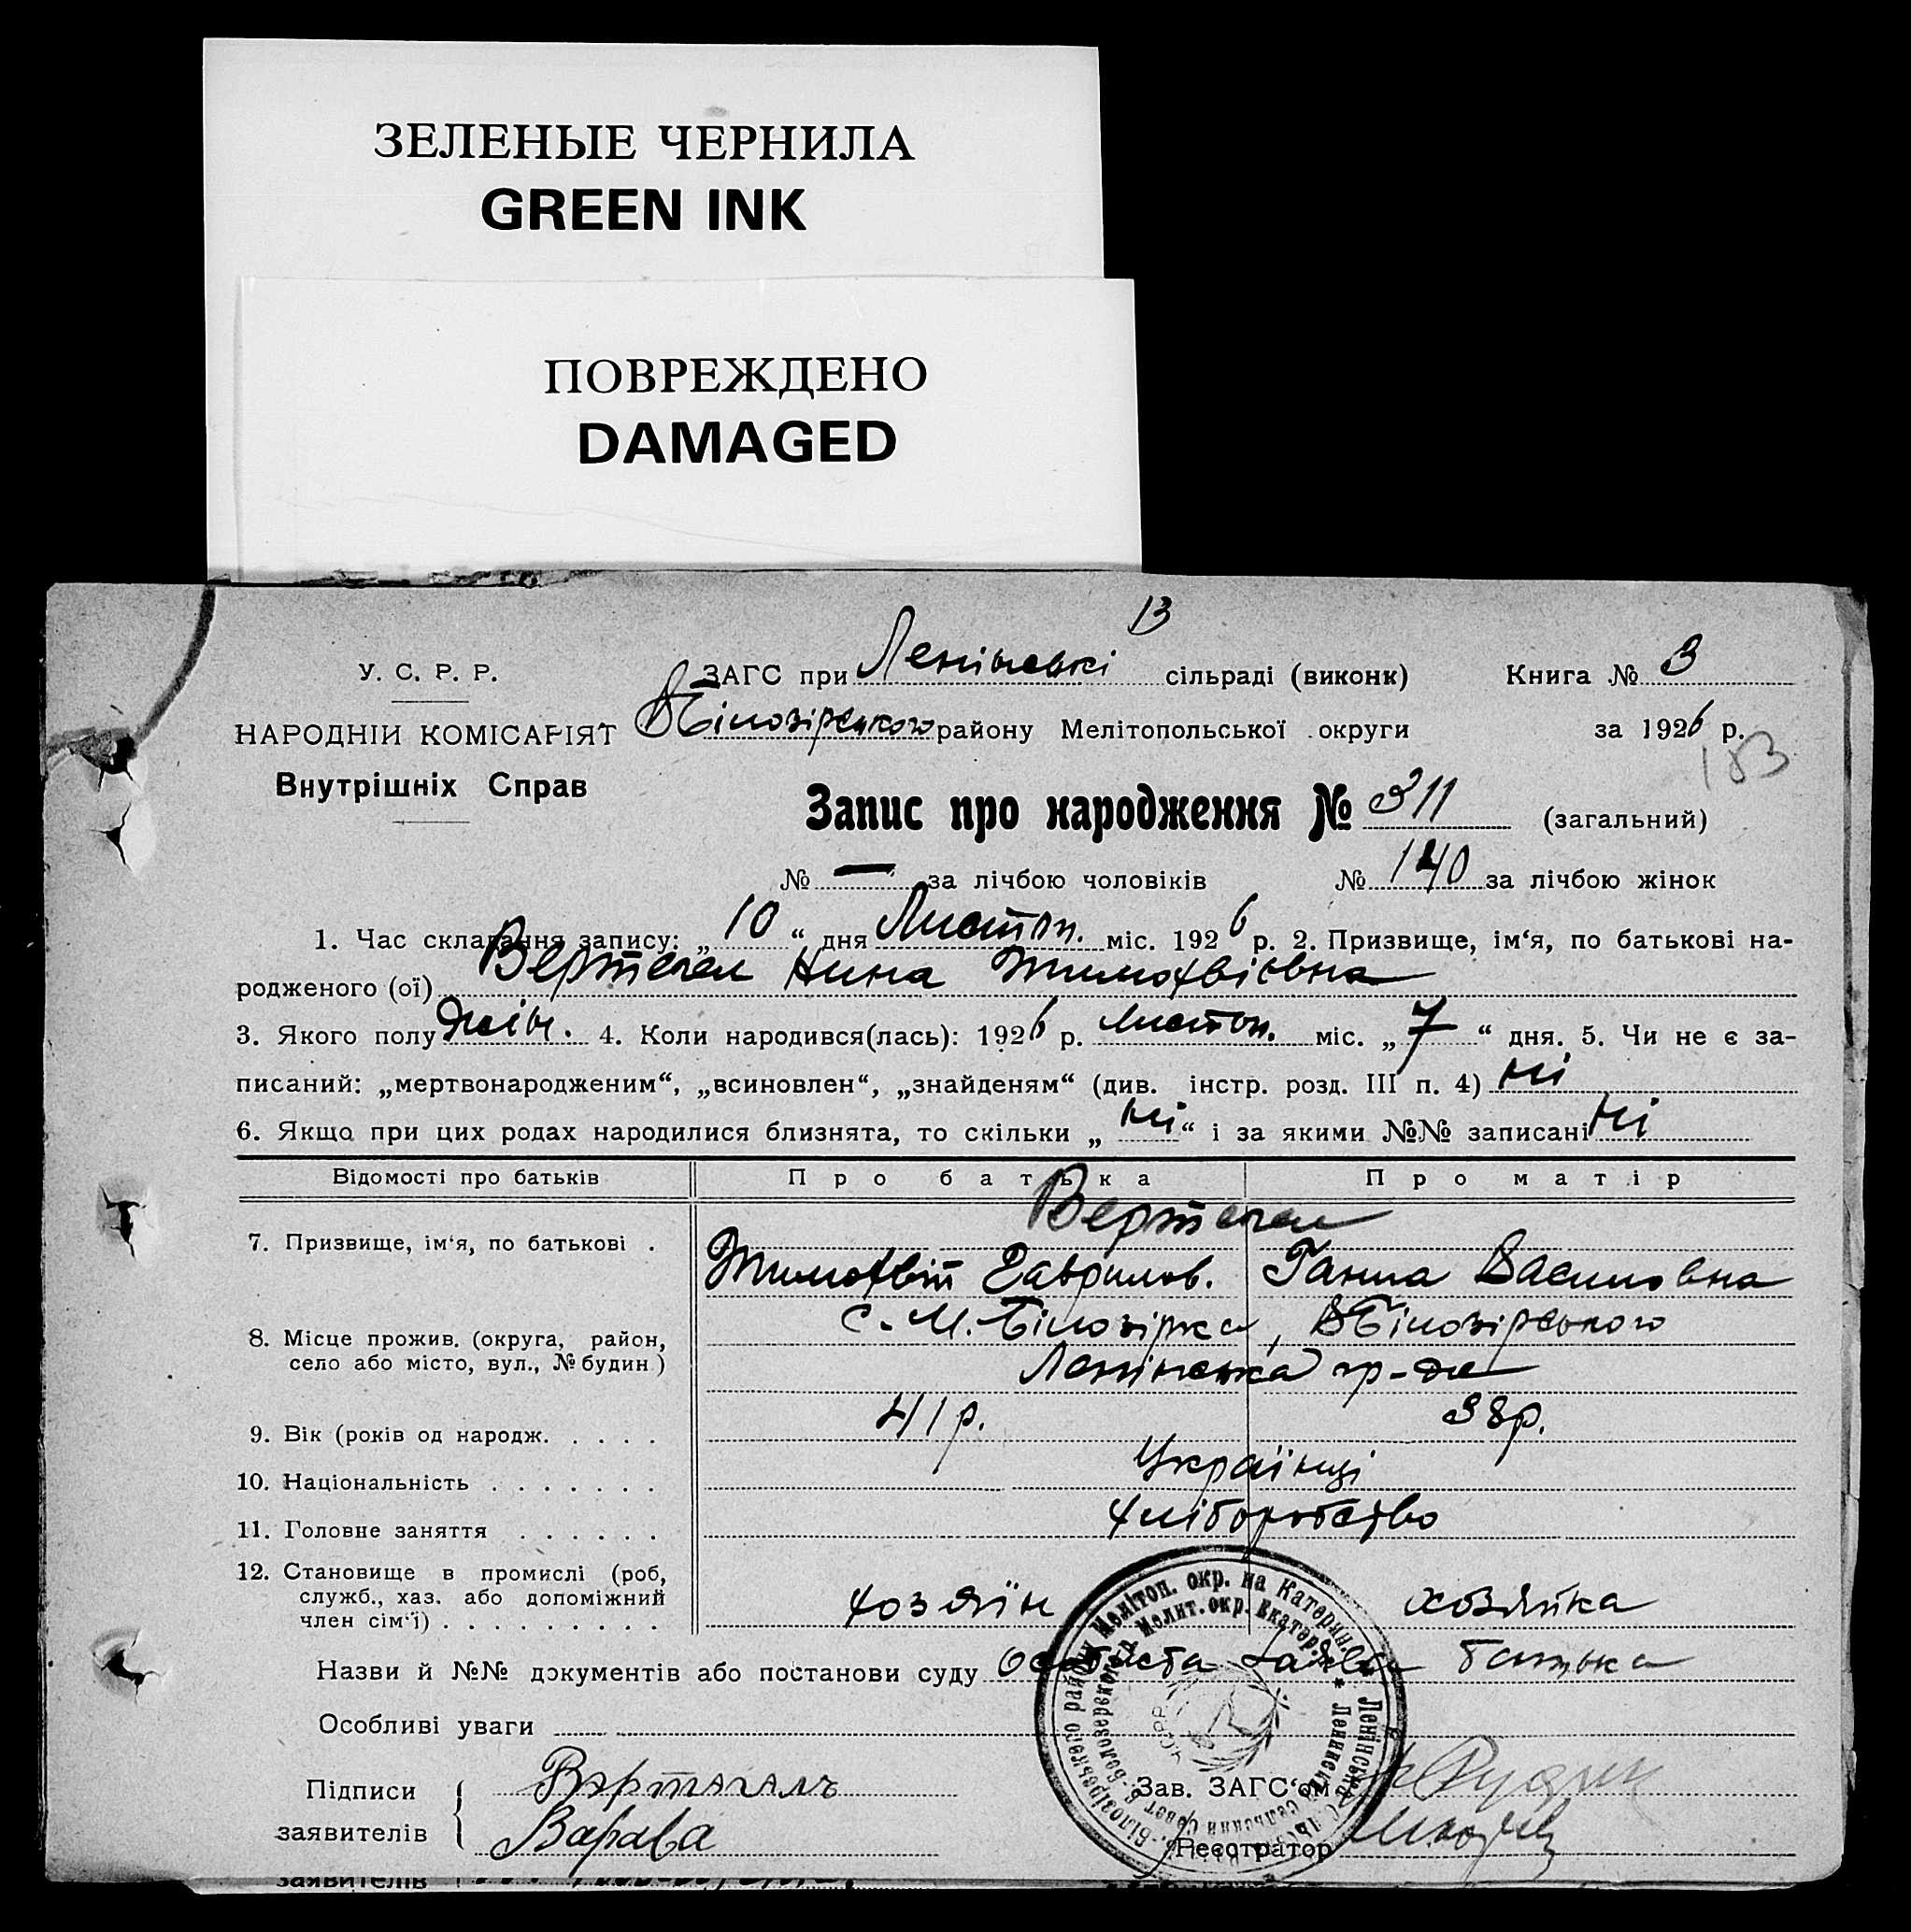 ЗЕЛЕНЫЕ ЧЕРНИЛА
GREEN INK
ПОВРЕЖДЕНО
DAMAGED
13
У. С. Р. Р.
ЗАГС при Ленінські сільраді (виконк) Книга № 3
НАРОДНІЙ КОМІСАРІЯТ
ВБілозірського району Мелітопольської округи за 1926 р.
183
Внутрішніх Справ
Запис про народження № 311 (загальний)
№ — за лічбою чоловіків № 140 за лічбою жінок
1. Час складання запису: „10“ дня Листоп. міс. 1926 р. 2. Призвище, ім‘я, по батькові на-
родженого (ої) Вертегел Нина Тимофвієвна
3. Якого полу жін. 4. Коли народився(лась): 1926 р. листоп. міс. „7“ дня. 5. Чи не є за-
писаний: „мертвонародженим“, „всиновлен“, „знайденям“ (див. інстр. розд. III п. 4) ні
6. Якщо при цих родах народилися близнята, то скільки „ні“ і за якими №№ записані ні
Відомості про батьків Про батька Про матір
Вертегел
7. Призвище, ім‘я, по батькові .
Тимофвій Гаврилов. Ганна Василовна
8. Місце прожив. (округа, район, село або місто, вул., № будин)
с. М. Білозірка, ВБілозірського
Ленінська гр-да
9. Вік (років од народж. . . . . 41 р. 38 р.
10. Національність . . . . . . . Українці
11. Головне заняття . . . . . . хліборобство
12. Становище в промислі (роб,
служб., хаз. або допоміжний
член сім‘ї) . . . . . . . . . хозяїн хозяйка
Назви й №№ документів або постанови суду особиста заява батька
Особливі уваги
Підписи Вэртагалъ
Зав. ЗАГС‘ом
заявителів Варава
Реєстратор
заявителів